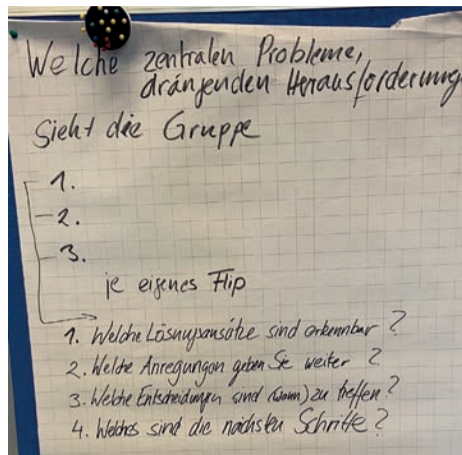 Welche zentralen Probleme,
drängenden Herausforderung
Sieht die Gruppe
1.
2.
3.
je eigenes Flip
1. Welche Lösungsansätze sind erkennbar ?
2. Welche Anregungen geben Sie weiter ?
3. Welche Entscheidungen sind (wann) zu treffen ?
4. Welches sind die nächsten Schritte ?